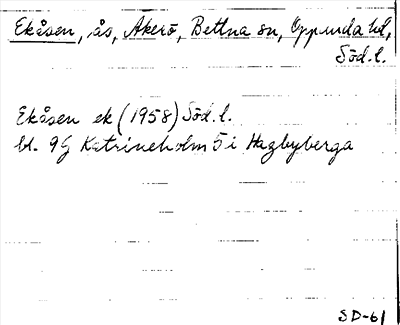 Ekåsen, ås, Åkerö, Bettna sn, Oppunda hd,
Söd.l.
Ekåsen ek (1958) Söd.l.
bl. 9G Katrineholm 5i Hagbyberga
SD-61